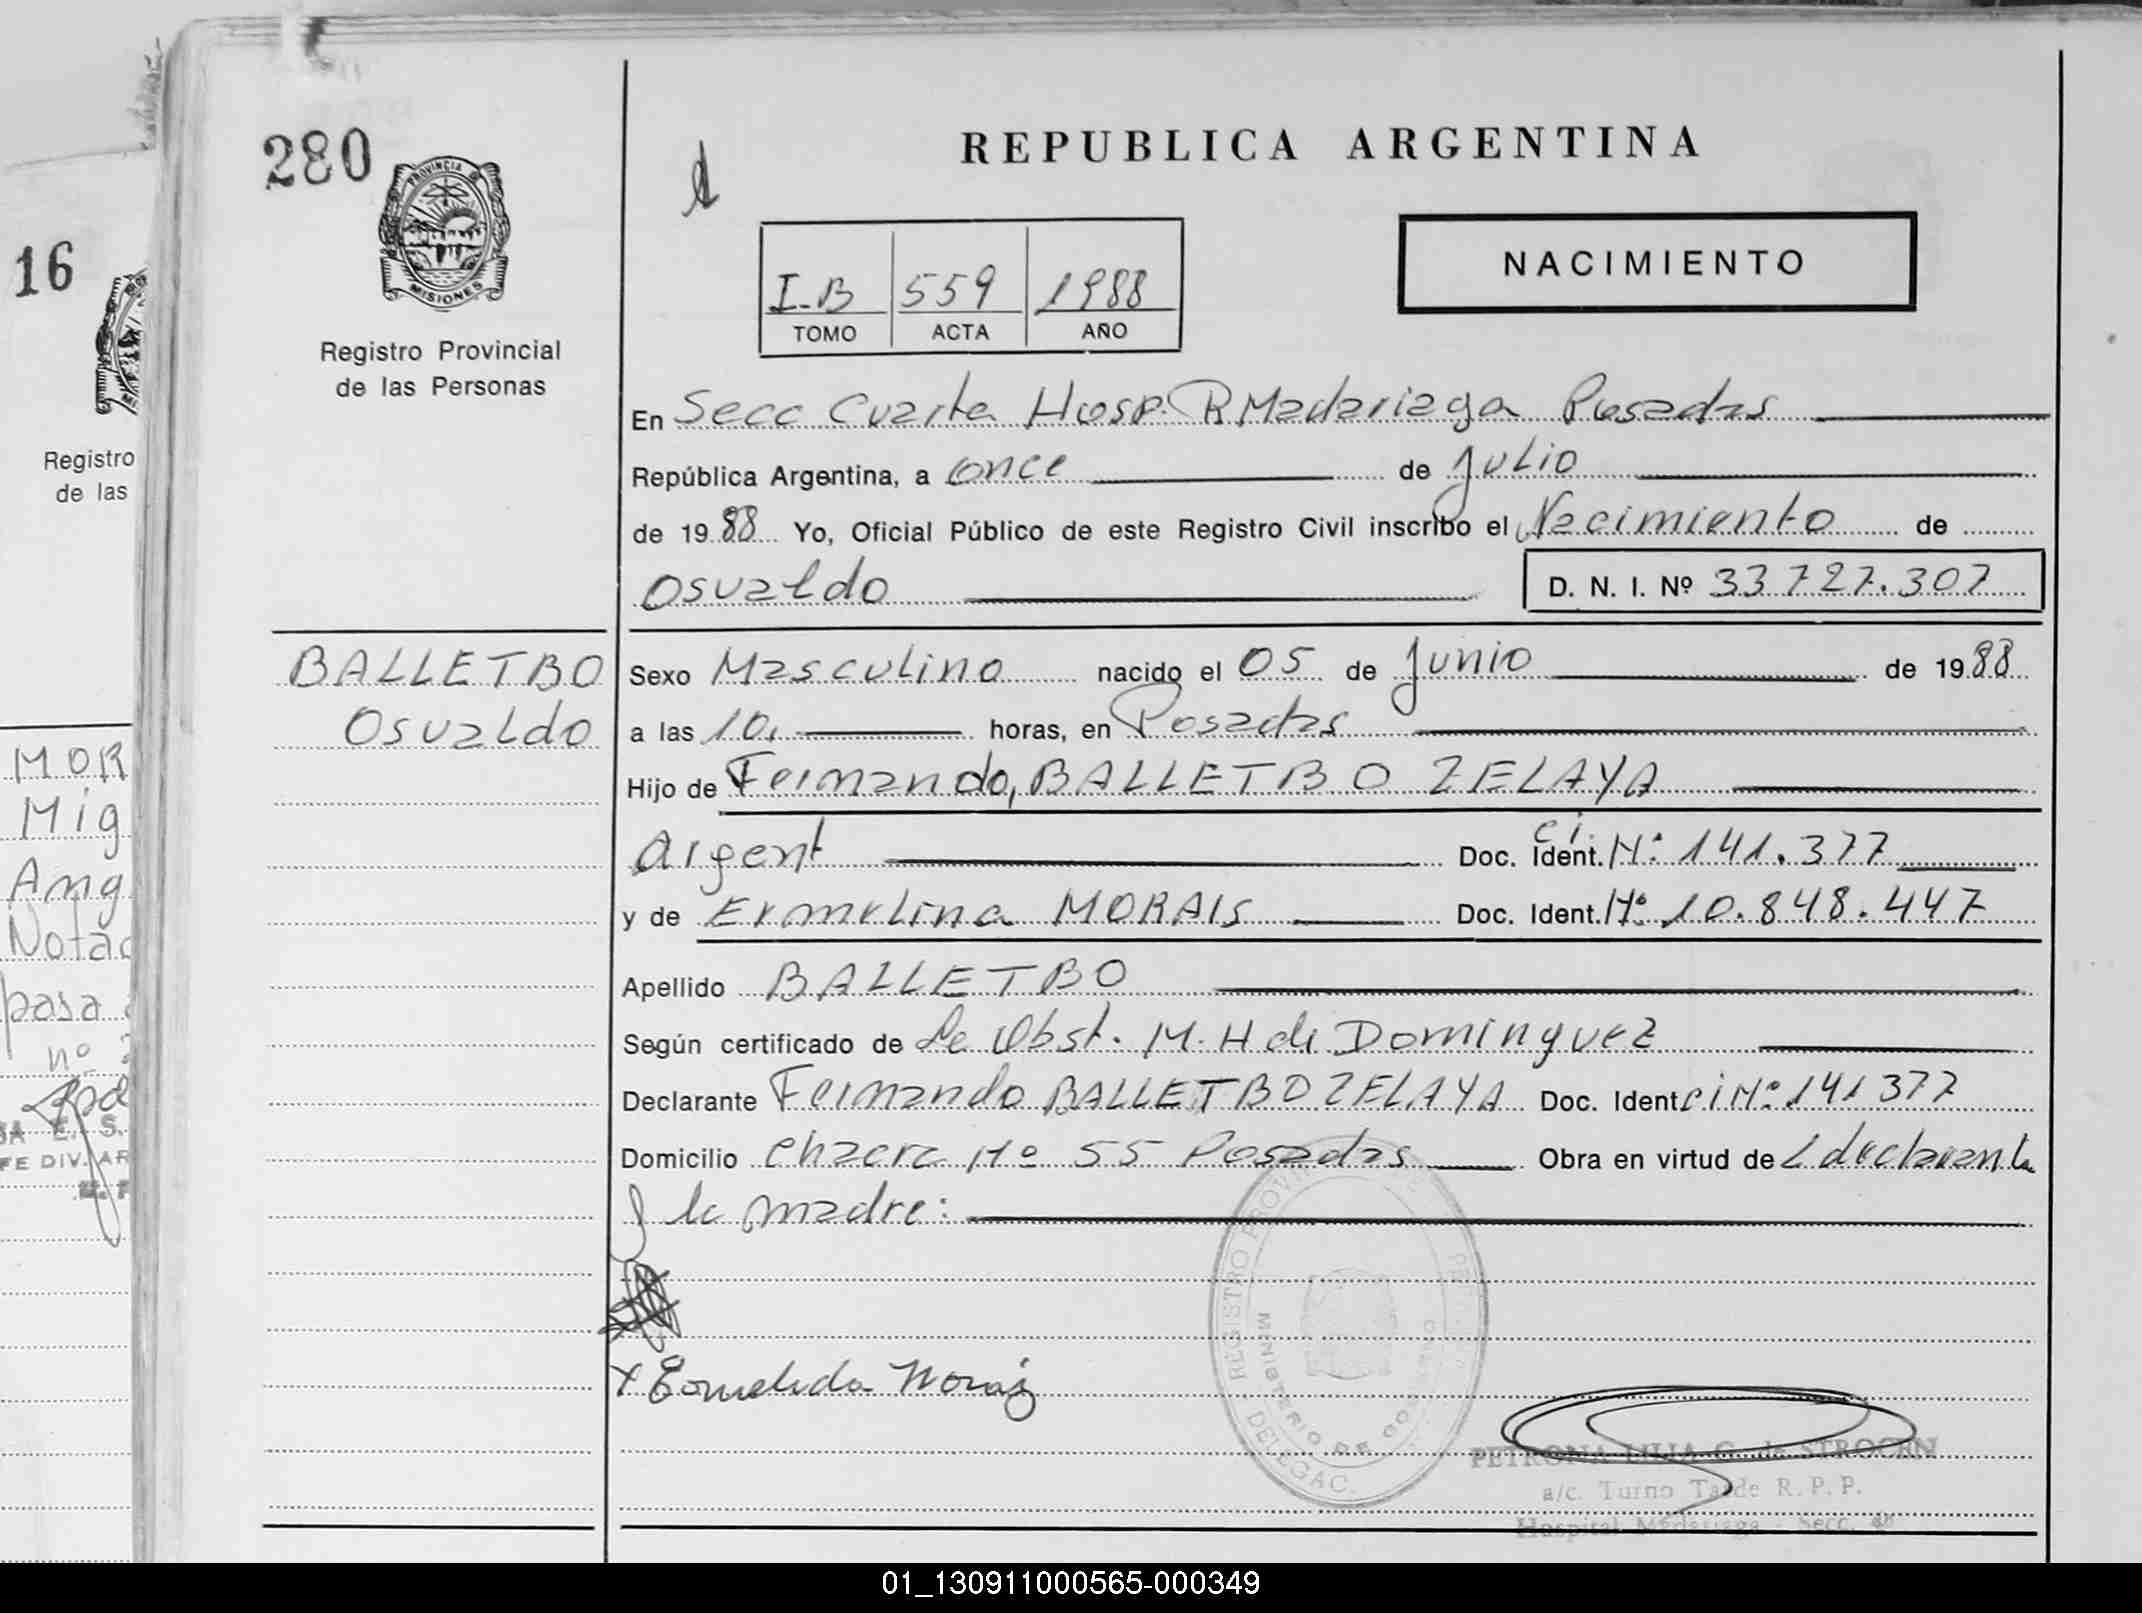 280
PROVINCIA D
MISIONES
Registro Provincial
de las Personas
REPUBLICA ARGENTINA
NACIMIENTO
I-B 559 1988
TOMO ACTA AÑO
En Secc Cuarta Hosp. R Madariaga Posadas
República Argentina, a once de Julio
de 1988 Yo, Oficial Público de este Registro Civil inscribo el Nacimiento de
Osvaldo D. N. I. Nº 33.727.307
BALLETBO
Osvaldo
Sexo Masculino nacido el 05 de Junio de 1988
a las 10. horas, en Posadas
Hijo de Fernando, BALLETBO ZELAYA
Argent Doc. Ident. C.I. Nº 141.377
y de Ermelina MORAIS Doc. Ident. Nº 10.848.447
Apellido BALLETBO
Según certificado de La Obst. M. H de Dominguez
Declarante Fernando BALLETBO ZELAYA Doc. Ident Ci Nº 141377
Domicilio Chacra Nº 55 Posadas Obra en virtud de L declarante
y la madre:
REGISTRO PROVIN
MINISTERIO DE GO
DELEGAC.
PETRONA LILIA G. de STROCEN
a/c. Turno Tarde R. P. P.
Hospital Madariaga - Secc. 4ª
16
Registro
de las
MOR
Mig
Ang
Notac
pasa
nº
E. S.
FE DIV. AR
01_130911000565-000349